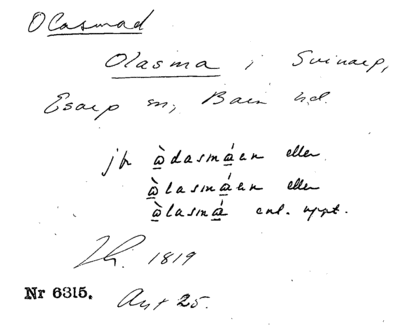 Olasmad
Olasma i Svinarp,
Esarp sn, Bara hd.
jfr òdasmáen eller
òlasmáen eller
òlasmá enl. uppt.
1819
Nr 6315. Ant 25.